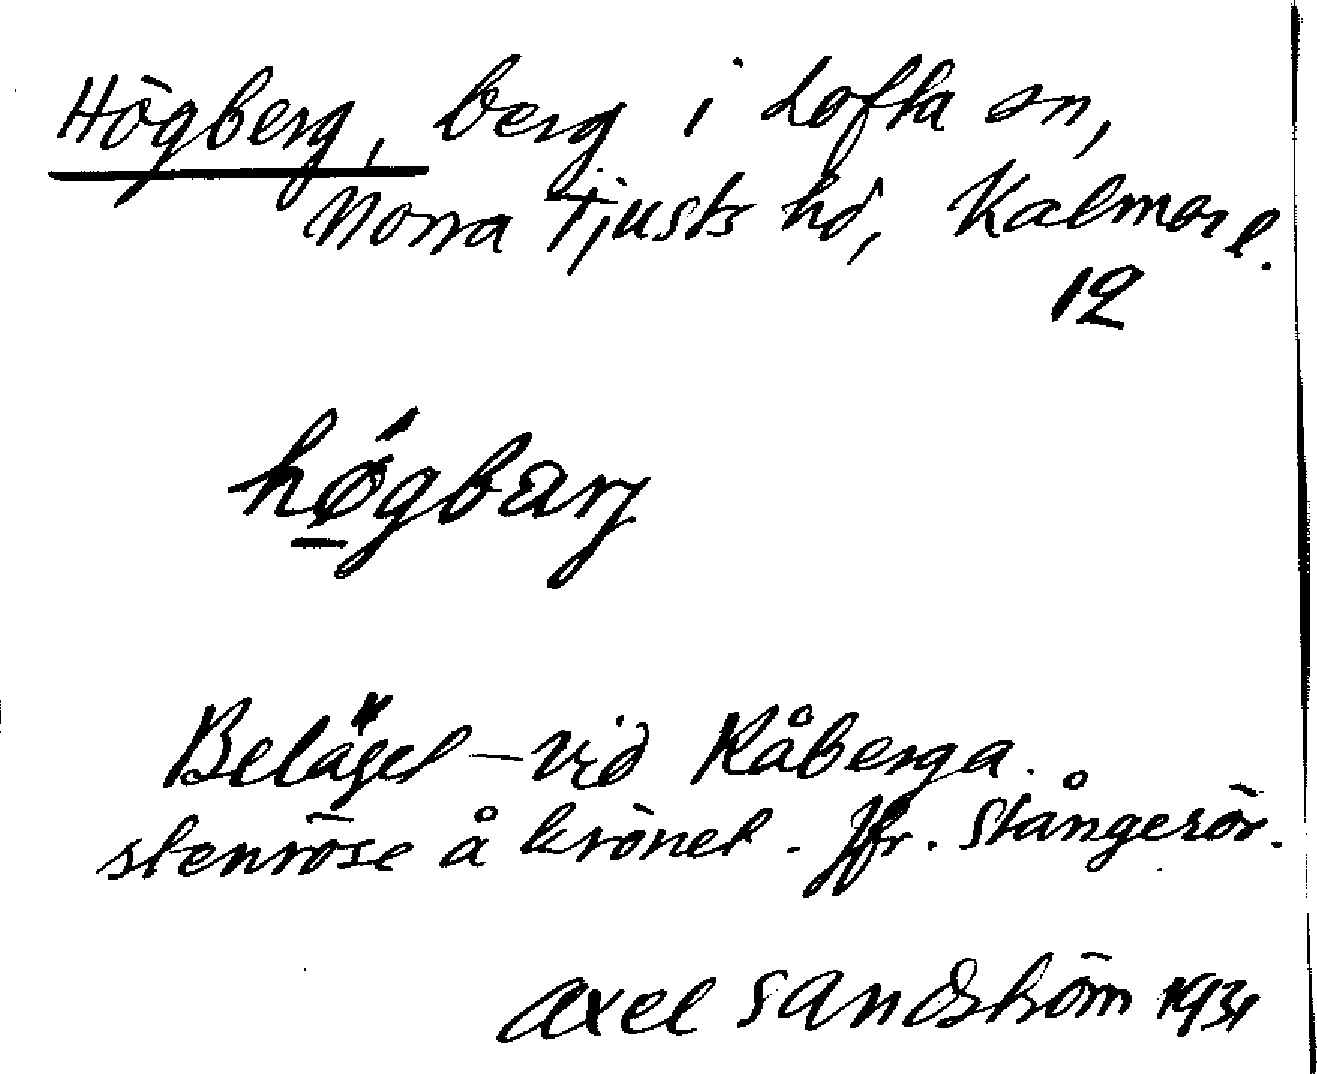 Högberg, berg i Lofta sn,
Norra Tjusts hd, Kalmar l.
12
hǿ̱gbarj
Beläget – vid Råberga.
stenröse å krönet. Jfr. Stångerör.
Axel Sandström 1931